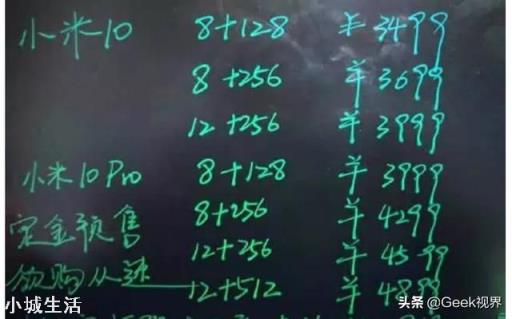 小米10 8+128 羊3499
8+256 羊3699
12+256 羊3999
小米10Pro 8+128 羊3999
定金预售 8+256 羊4299
12+256 羊4599
欲购从速 12+512 羊4899
小城生活
头条 @Geek视界